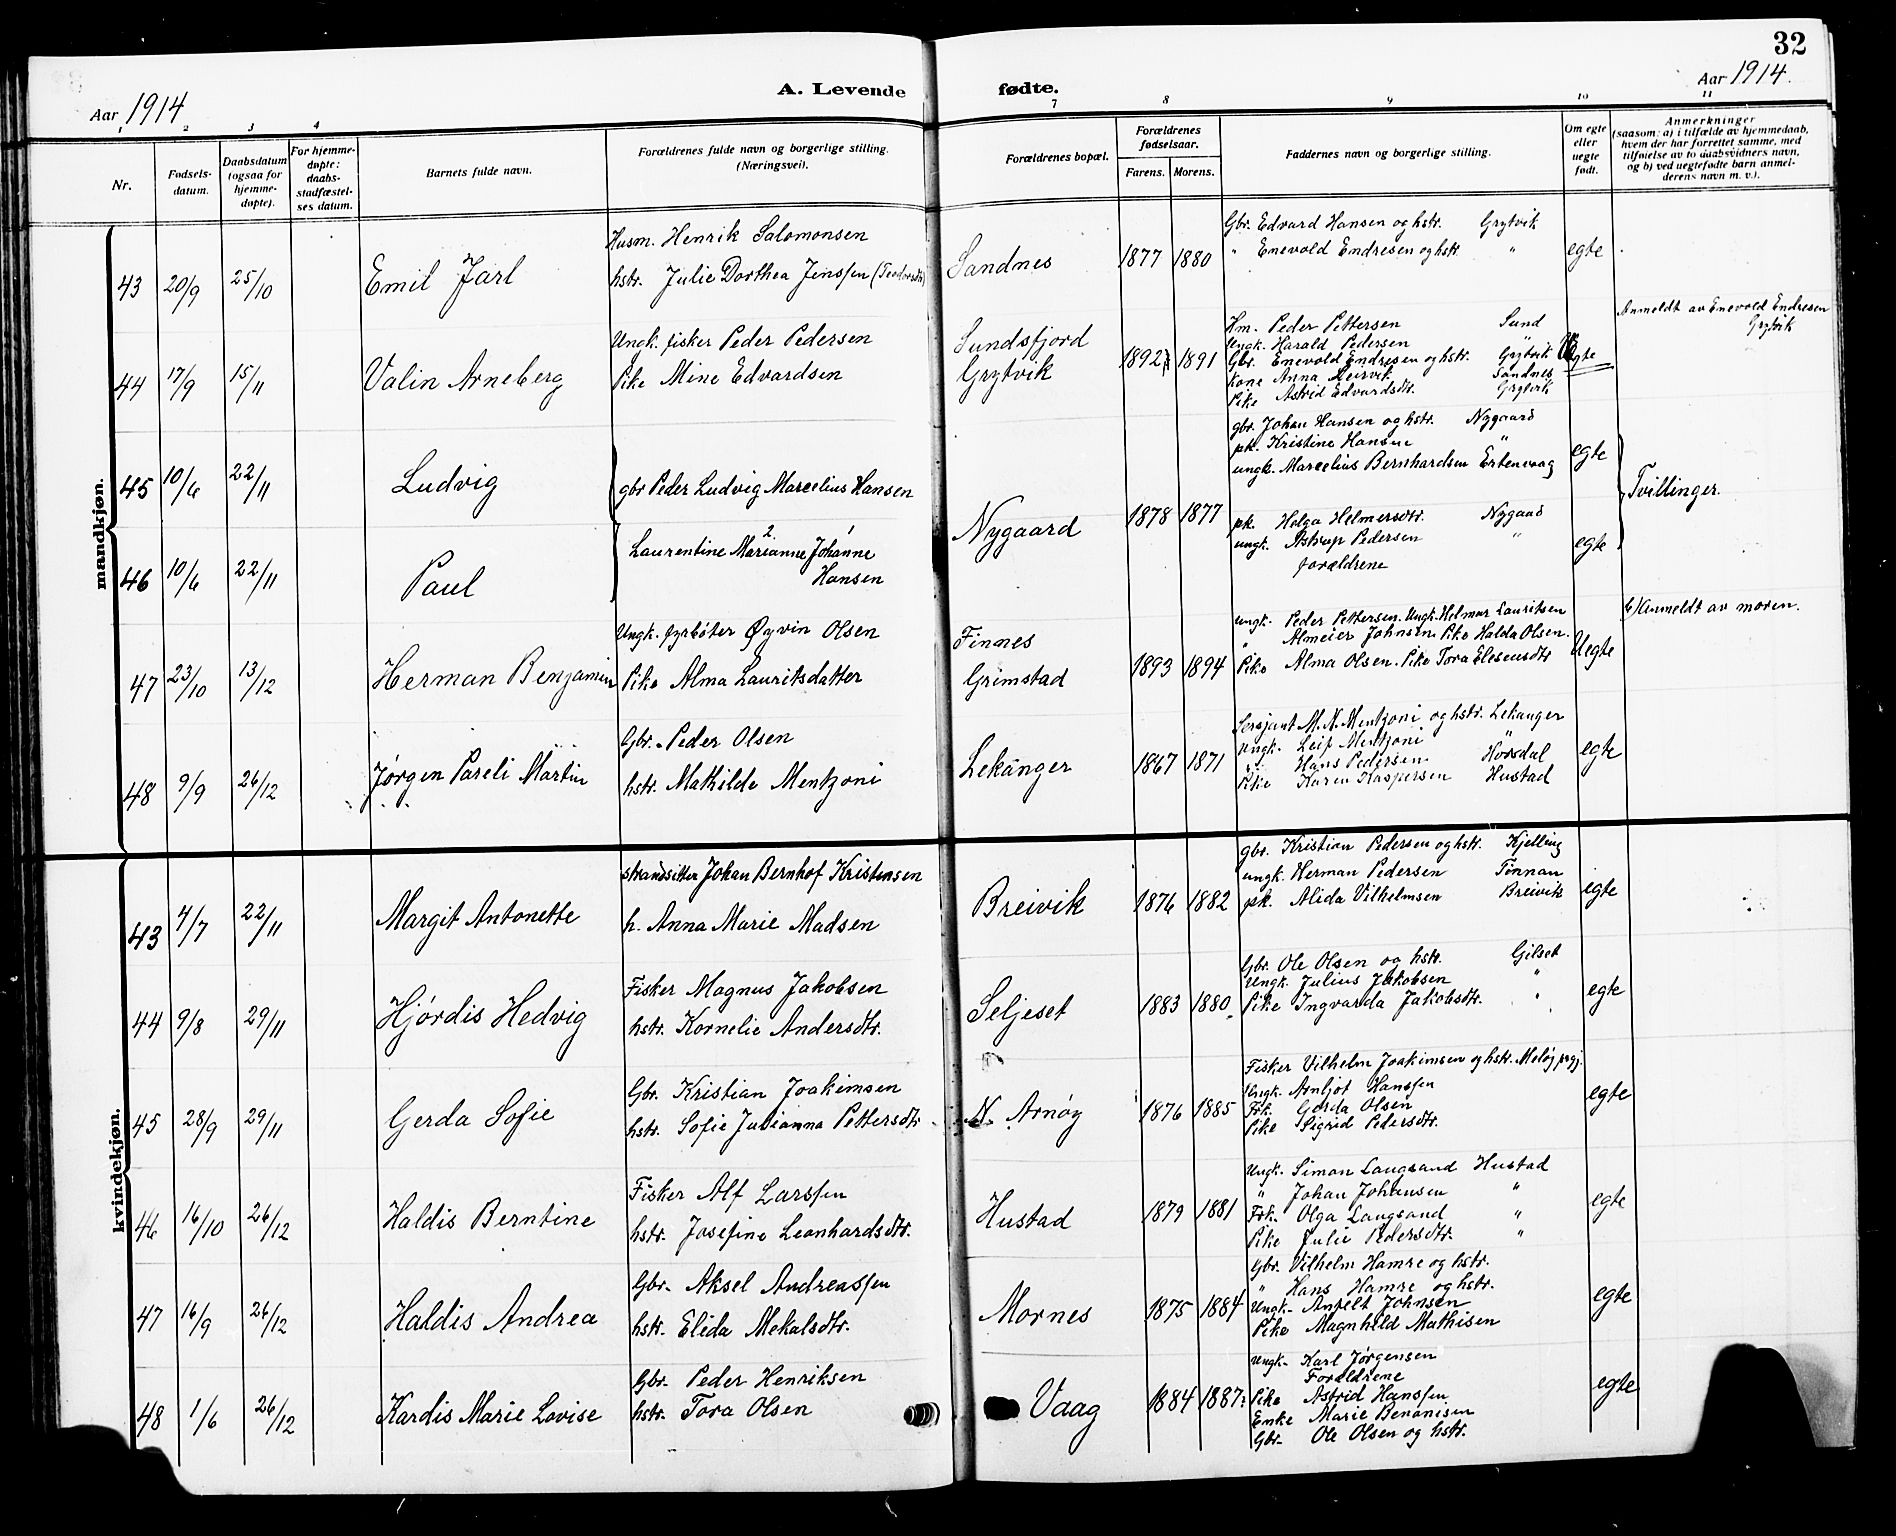 32
Aar 1914
A. Levende fødte.
Aar 1914.
1 2 3 4 7 8 9 10 11
Nr.
Fødsels-
datum.
Daabsdatum
(ogsaa for
hjemme-
døpte).
For hjemme-
døpte:
daabs-
stadfæstel-
ses datum.
Barnets fulde navn.
Forældrenes fulde navn og borgerlige stilling.
(Næringsvei).
Forældrenes bopæl.
Forældrenes
fødselsaar.
Farens. Morens.
Faddernes navn og borgerlige stilling.
Om egte
eller
uegte
født.
Anmerkninger
(saasom: a) i tilfælde av hjemmedaab,
hvem der har forrettet samme, med
tilføielse av to daabsvidners navn,
og b) ved uegtefødte barn anmel-
derens navn m. v.).
mandkjøn.
43 20/9 25/10 Emil Jarl
Husm. Henrik Salomonsen
hstr. Julie Dorthea Jenssen (Teodorsdtr)
Sandnes 1877 1880
Gbr. Edvard Hansen og hstr. Grytvik
" Enevold Endresen og hstr. "
egte
44 17/9 15/11 Valin Arneberg
Ungk. fisker Peder Pedersen
Pike Mine Edvardsen
Sundsfjord
Grytvik
1892 1891
Hm. Peder Pettersen Sund
Ungk. Harald Pedersen "
Gbr. Enevold Endresen og hstr. Grytvik
Kone Anna Leirvik Sandnes
Pike Astrid Edvardsdtr. Grytvik
Uegte
Anmeldt av Enevold Endresen
Grytvik
45 10/6 22/11 Ludvig
gbr Peder Ludvig Marcelius Hansen
gbr. Johan Hansen og hstr. Nygaard
pk. Kristine Hansen "
ungk. Marcelius Bernhardsen Ertenvaag
egte
Tvillinger.
Nygaard 1878 1877
46 10/6 22/11 Paul
Laurentine Marianne Johanne
Hansen
pk. Helga Helmersdtr. Nygaard
ungk. Astrup Pedersen "
forældrene
egte
47 23/10 13/12 Herman Benjamin
Ungk. fyrbøter Øyvin Olsen
Pike Alma Lauritsdatter
Finnes
Grimstad
1893 1894
ungk. Peder Pettersen. Ungk. Helmer Lauritsen
" Almeier Johnsen. Pike Halda Olsen.
Pike Alma Olsen. Pike Tora Elesensdtr
Uegte
b) Anmeldt av moren.
48 9/9 26/12 Jørgen Pareli Martin
Gbr. Peder Olsen
hstr. Mathilde Mentzoni
Lekanger 1867 1871
Sersjant M. N. Mentzoni og hstr. Lekanger
Ungk. Leif Mentzoni "
" Hans Pedersen Horsdal
Pike Karen Kaspersen Hustad
egte
kvindekjøn.
43 4/7 22/11 Margit Antonette
strandsitter Johan Bernhof Kristensen
h. Anna Marie Madsen
Breivik 1876 1882
gbr. Kristian Pedersen og hstr. Kjelling
ungk. Herman Pedersen Tonnan
pk. Alida Vilhelmsen Breivik
egte
44 9/8 29/11 Hjørdis Hedvig
Fisker Magnus Jakobsen
hstr. Kornelie Andersdtr.
Seljeset 1883 1880
Gbr. Ole Olsen og hstr. Gilset
Ungk. Julius Jakobsen "
Pike Ingvarda Jakobsdtr. "
egte
45 28/9 29/11 Gerda Sofie
Gbr. Kristian Joakimsen
hstr. Sofie Julianna Pettersdtr
N. Arnøy 1876 1885
Fisker Vilhelm Joakimsen og hstr. Meløy prgj.
Ungk. Arnljot Hanssen
Frk. Gerda Olsen
Pike Sigrid Pedersdtr.
egte
46 16/10 26/12 Haldis Berntine
Fisker Alf Larssen
hstr. Josefine Leonhardsdtr.
Hustad 1879 1881
Ungk. Simon Langsand Hustad
" Johan Johansen "
Frk. Olga Langsand "
Pike Julie Pedersdtr. "
egte
47 16/9 26/12 Haldis Andrea
Gbr. Aksel Andreassen
hstr. Elida Mekalsdtr.
Mornes 1875 1884
Gbr. Vilhelm Hamre og hstr.
" Hans Hamre og hstr.
Ungk. Anfelt Johnsen
Pike Magnhild Mathisen
egte
48 1/6 26/12 Kardis Marie Lovise
Gbr. Peder Henriksen
hstr. Tora Olsen
Vaag 1884 1887
Ungk. Karl Jørgensen
Forældrene
Pike Astrid Hanssen
Enke Marie Benonisen
Gbr. Ole Olsen og hstr.
egte